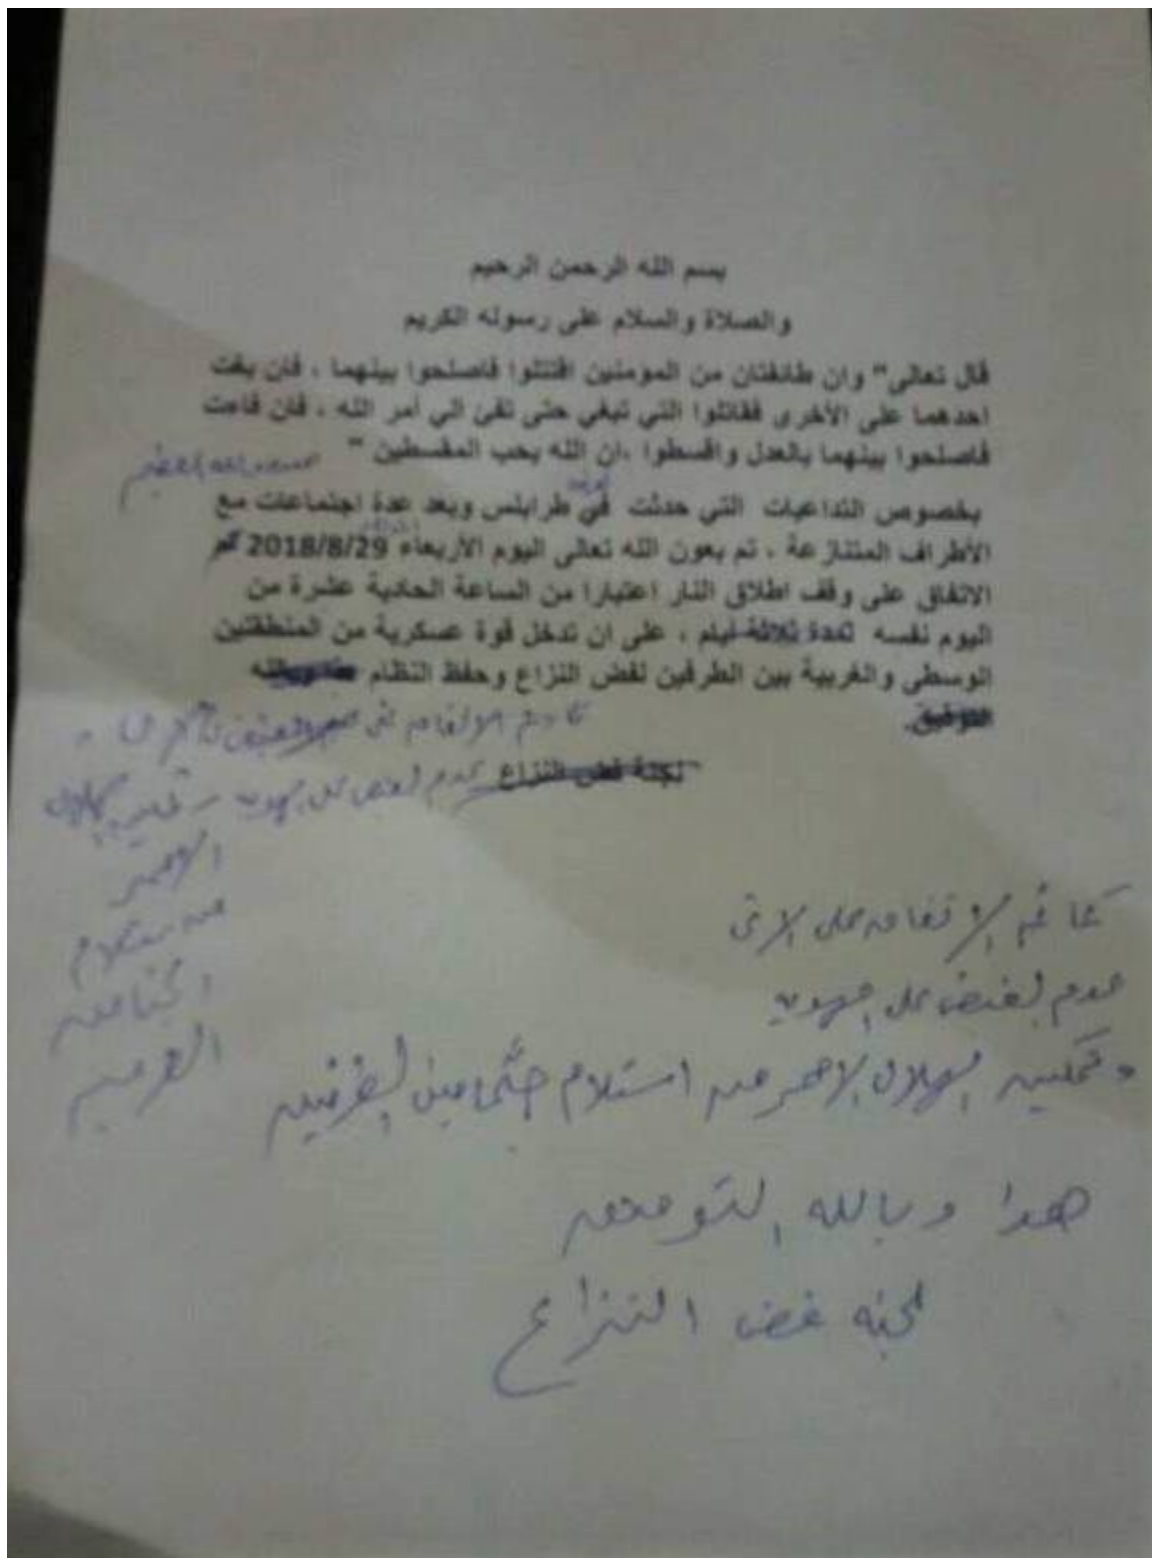 بسم الله الرحمن الرحيم
والصلاة والسلام على رسوله الكريم
قال تعالى" وان طائفتان من المومنين اقتتلوا فاصلحوا بينهما ، فان بغت
احدهما على الأخرى فقاتلوا التي تبغي حتى تفئ الي أمر الله ، فان فاءت
فاصلحوا بينهما بالعدل واقسطوا ،ان الله يحب المقسطين " صدق الله العظيم
بخصوص التداعيات التي حدثت في طرابلس وبعد عدة اجتماعات مع
الأطراف المتنازعة ، تم بعون الله تعالى اليوم الأربعاء 2018/8/29 تم
الاتفاق على وقف اطلاق النار اعتبارا من الساعة الحادية عشرة من
اليوم نفسه لمدة ثلاثة ايام ، على ان تدخل قوة عسكرية من المنطقتين
الوسطى والغربية بين الطرفين لفض النزاع وحفظ النظام هذا وبالله
التوفيق.
لجنة فض النزاع عدم القبض على الهوية
الاحمر
من استلام
الجثامين
كما تم الاتفاق على الاتى
عدم القبض على الهوية
وتمكين الهلال الاحمر من استلام جثامين الطرفين
هدا وبالله التوفيق
لجنة فض النزاع